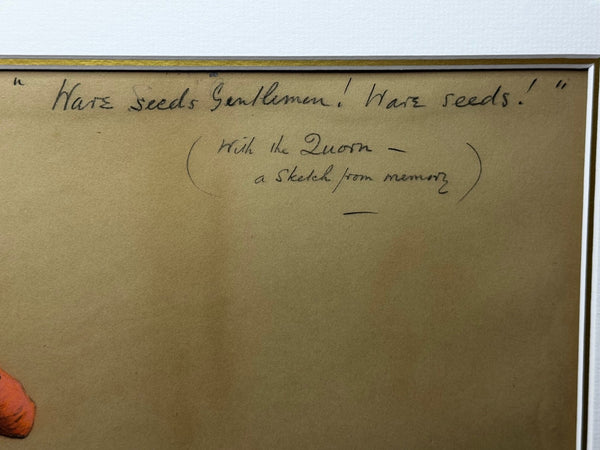 " Ware seeds Gentlemen! Ware seeds! "
(With the Quorn —
a sketch from memory)